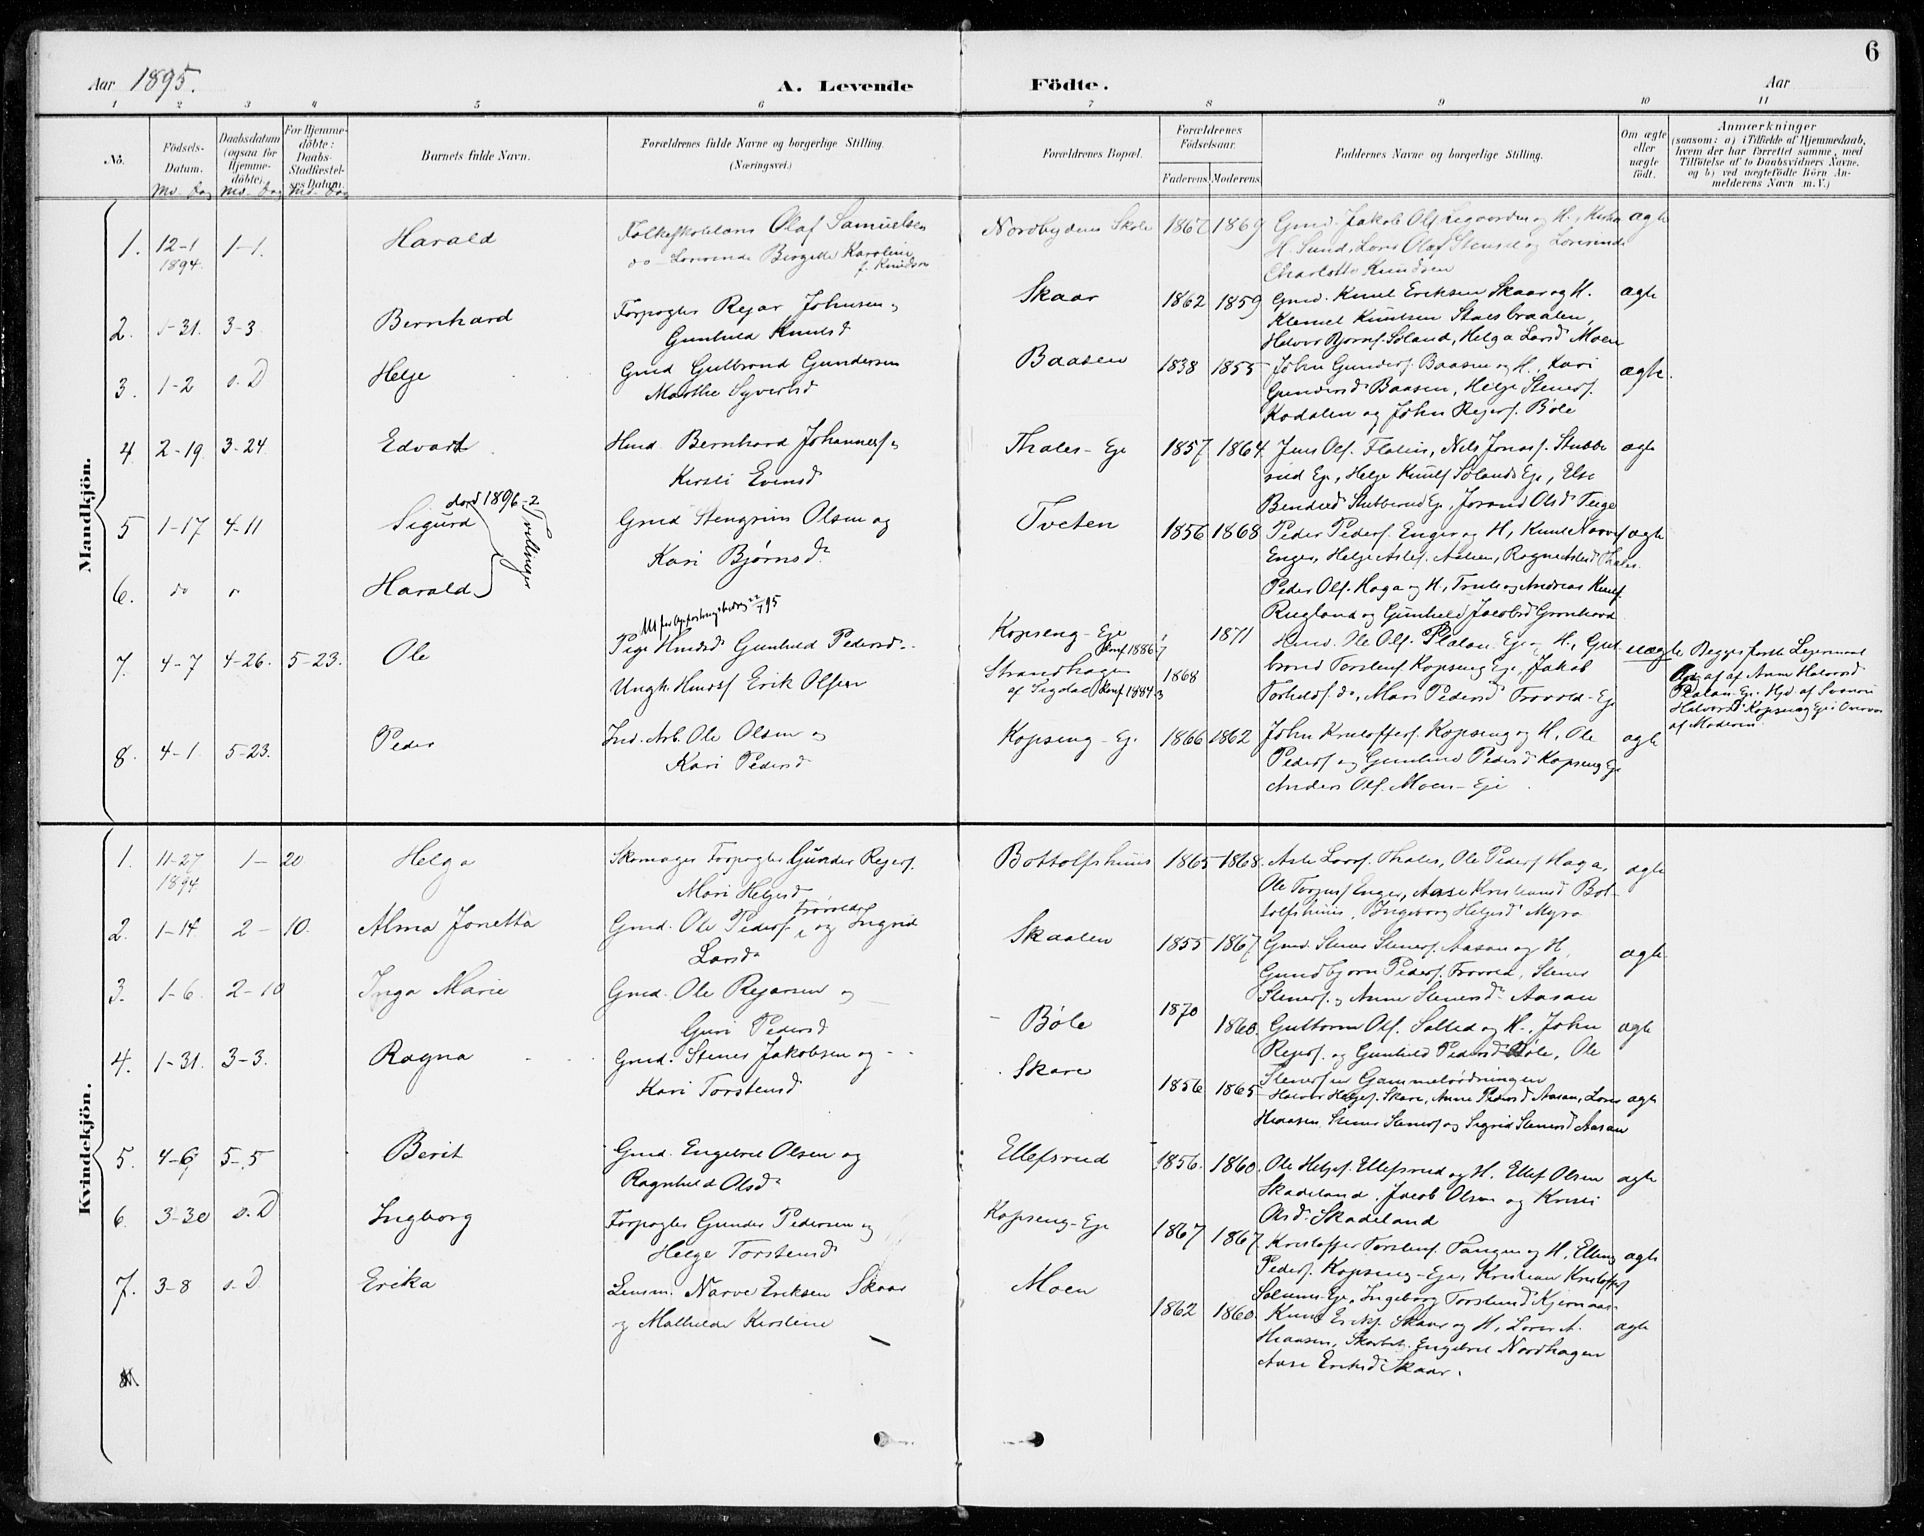 6
Aar 1895.
A. Levende Födte.
Aar
1 2 3 4 5 6 7 8 9 10 11
No.
Födsels-Datum.
Mo. Dag
Daabsdatum (ogsaa for Hjemme-döbte).
Mo. Dag
For Hjemme-döbte: Daabs-Stadfæstel-ses Datum.
Md. Dag
Barnets fulde Navn.
Forældrenes fulde Navne og borgerlige Stilling.
(Næringsvei.)
Forældrenes Bopæl.
Forældrenes Födselsaar.
Faderens. Moderens.
Faddernes Navne og borgerlige Stilling.
Om ægte eller uægte födt.
Anmærkninger
(saasom: a) i Tilfælde af Hjemmedaab,
hvem der har forrettet samme, med
Tilföielse af to Daabsvidners Navne,
og b) ved uægtefödte Börn An-
melderens Navn m. V.)
Mandkjön.
1. 12-1 1894. 1-1. Harald
Olaf Samuelsen
do Lovinde Birgitte Karoline
f. Knudsen
Nordbydens Skole 1867 1869
Gmd. Jakob Ols.
H. Sund,
Charlotte Knudsen
ægte
2. 1-31. 3-3. Bernhard
Forpagter Rejar Johnsen,
Gunhild Knutsd
Skaar 1862 1859
Gmd. Knut Eriksen Skaar og H.
Klemet Knutsen Stalsbraaten,
Halvor Bjørnsf. Søland, Helga Larsd Moen
ægte
3. 1-2 s. D Helge
Gmd Gulbrand Gundersen
Marthe Syversd
Baasen 1838 1855
John Gundersf. Baasen og H., Kari
Gundersd Baasen, Helge Stenersf.
Kodalen og John Rejersf. Bøle
ægte.
4. 2-19. 3-24. Edvart
Hmd. Bernhard Johannesf,
Kirsti Evensd
Thales-Eje 1857 1864.
Jens Ols. Flatin, Nils Jonasf. Stubbe
rud Eje, Helge Knutsf Søland Eje, Else
Stubberud Eje, Jorand Olsd Teige
ægte
5 1-17 4-11 Sigurd
død 1896-2
Tvillinger
Gmd Stengrim Olsen og
Kari Bjørnsd.
Tveten 1856 1868
Peder Pedersf. Enger og H, Knut Narvesf
Enger, Helge Aslef. Aslien, Ragne Thales.
Peder Olsf. Haga og H,
Rugland og Gunhild Jacobsd Grønhovd
ægte
6. do Harald
7. 4-7 4-26. 5-23. Ole
Pige Hmdsd. Gunhild Pedersd.
Ungk. Hmdsf. Erik Olsen
Kopseng-Eje
Konf 1886-7
Strandhagen
af Sigdal Konf. 1884-3
1871
1868
Hmd. Ole Olsf. Platan-Eje og H., Gul
brand Torstensf Kopseng Eje, Jakob
Mari Pedersd Frøvold-Eje
uægte
Begges første Leiermaal
af Anne Halvorsd
Platan-Eje. Hjd af
Halvorsd Kopseng Eje
af Moderen.
8. 4-1. 5-23. Peder
Ind. Arb. Ole Olsen og
Kari Pedersd
Kopseng-Ej. 1866 1862
John Kristoffersf. Kopseng og H, Ole
Pedersf og Gunhild Pedersd Kopseng Eje
Anders Olsf. Moen-Eje.
ægte
Kvindekjön.
1. 11-27 1894 1-20 Helga
Skomager Forpagter Gunder Rejersf.
Mari Helgesd
Bottolfshuus 1865 1868.
Asle Larsf. Thales, Ole Pedersf Haga,
Enger, Aase Kristiansd Bot-
tolfshuus, Ingeborg Helgesd Myra
ægte
2. 1-14 2-10. Alma Jonetta
Gmd. Ole Pedersf. Frøvold og Ingrid
Larsd.
Skaalen 1855 1867
Gmd. Stener Stenersf. Aasan og H,
Gundbjørn Pedersf. Frøvold, Stener
Stenersf. og Anne Stenersd. Aasan
ægte
3. 1-6. 2-10 Inga Marie
Gmd. Ole Rejarsen og
Guri Pedersd
Bøle 1870 1860.
Guttorm Olsf. Solled og H., John
Rejersf. og Gunhild Pedersd Bøle, Ole
Stenersen Gammelørdningen
ægte
4. 1-31. 3-3. Ragna
Gmd. Stener Jakobsen og
Kari Torstensd
Skare 1856 1865
Halvor Helgesf. Skare, Anne Pedersd Aasan, Lars
Haasen, Stener Stenersf og Sigrid Stenersd Aasan
ægte
5. 4-6 5-5 Berit
Gmd. Engebret Olsen og
Ragnhild Olsd.
Ellefsrud 1856. 1860.
Ole Helgesf. Ellefsrud og H. Ellef Olsen
Skadeland, Jacob Olsen og Kristi
Olsd. Skadeland
ægte
6. 3-30 s. D Ingborg
Forpagter Gunder Pedersen og
Helge Torstensd
Kopseng-Eje 1867 1867
Kristoffer Torstensf. Tangen og H, Elling
Pedersf. Kopseng-Eje, Kristian Kristoffersf
Eje, Ingeborg Torstensd
ægte
7. 3-8 s. D Erika
Lensm. Narve Eriksen Skaar
og Mathilde Kirstine
Moen 1862 1860.
Knut Skaar og H, Lars A.
Haasen, Engebret Nordhagen
Aase Eriksd Skaar.
ægte